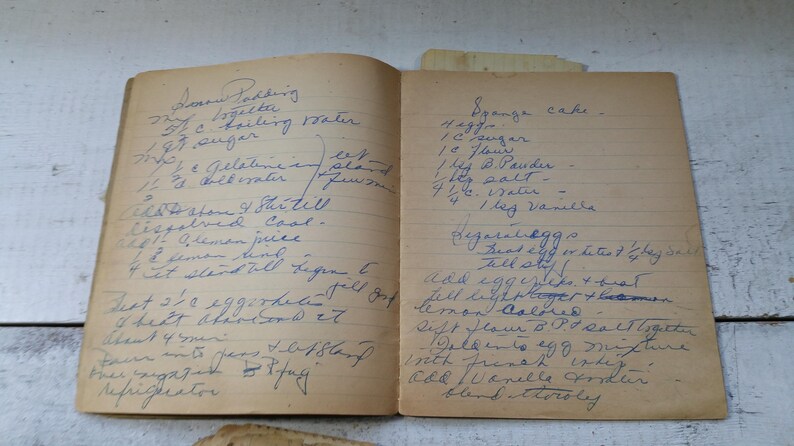 Snow Pudding
Mix together
5 1/2 c. boiling water
1 qt sugar
Mix
1 1/2 c gelatine in
1 1/2 c cold water
let
stand
few min
add to above & stir till
dissolved cool -
add 1 c lemon juice
lemon rind -
let stand till begin to
jell
Beat 2 1/2 c egg whites
& beat above into it
about 4 min
pour into pans & let stand
over night
refrigerator
Sponge cake -
4 eggs -
1 c sugar
1 c flour
1 tsp B. Powder -
1/4 tsp salt -
1/4 c. water -
1 tsp vanilla
Separate eggs
Beat egg whites & 1/4 tsp salt
till stiff
add egg yolks & beat
till light &
lemon colored -
sift flour B P & salt together
fold into egg mixture
with french whip -
add vanilla & water -
blend thoroly